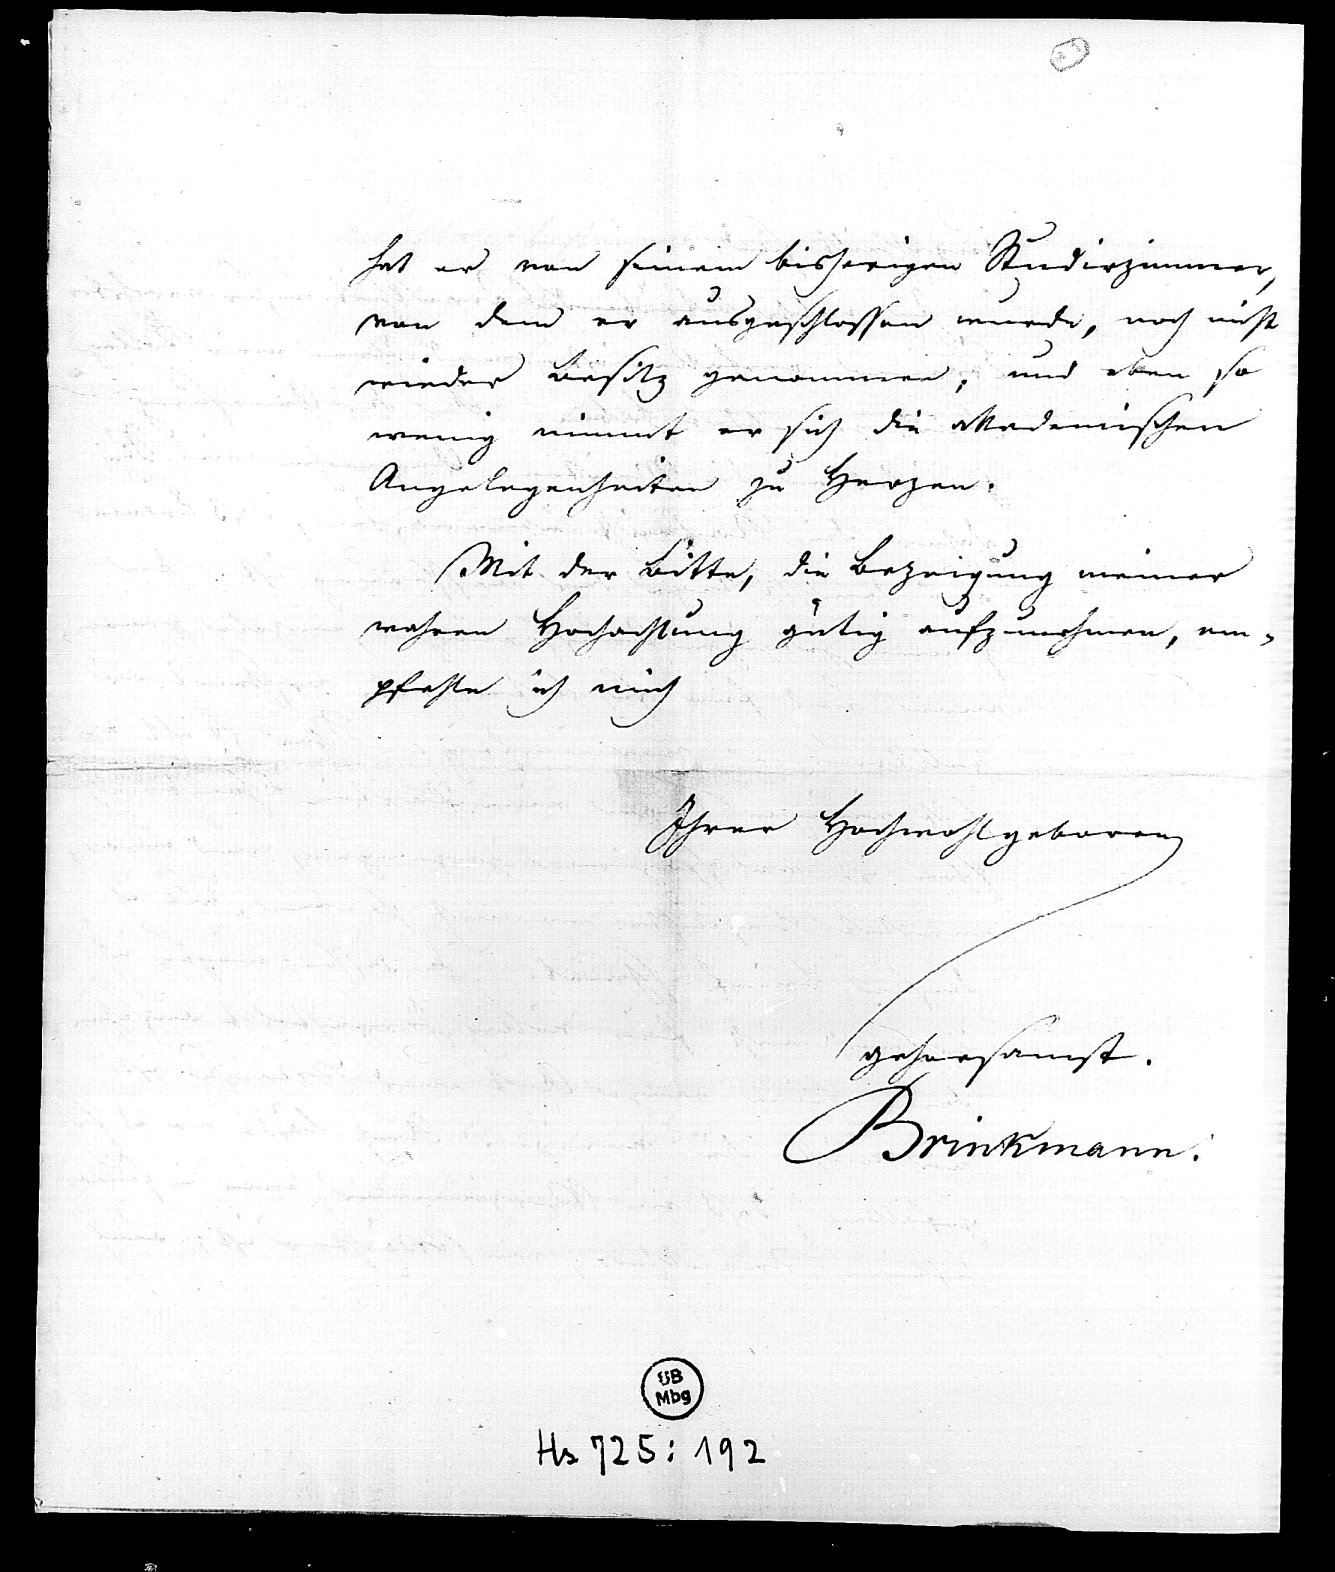 hat er von seinem bisherigen Studirzimmer,
von dem er ausgeschlossen wurde, noch nicht
wieder Besitz genommen, und eben so
wenig nimmt er sich die akademischen
Angelegenheiten zu Herzen.
Mit der Bitte, die Bezeigung meiner
wahren Hochachtung gütig aufzunehmen, em-
pfehle ich mich
Ihrer Hochwohlgeboren
gehorsamst.
Brinkmann.
UB
Mbg
Hs 725: 192